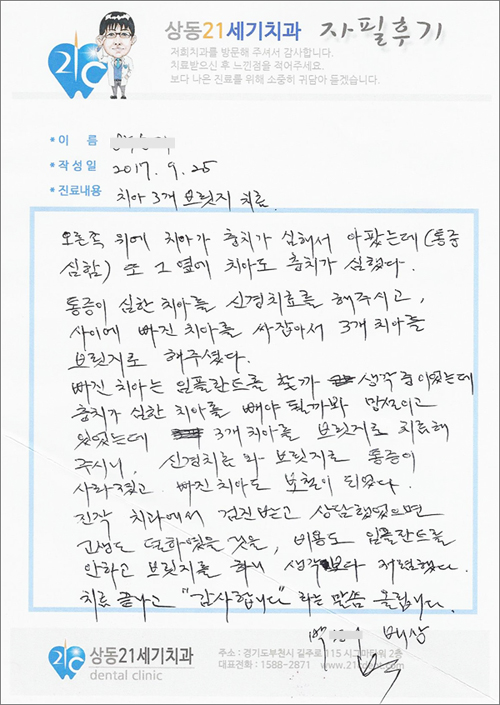 21c
상동21세기치과 자필후기
저희치과를 방문해 주셔서 감사합니다.
치료받으신 후 느낀점을 적어주세요.
보다 나은 진료를 위해 소중히 귀담아 듣겠습니다.
* 이 름
* 작 성 일 2017. 9. 25
* 진료내용 치아 3개 브릿지 치료.
오른쪽 위에 치아가 충치가 심해서 아팠는데 (통증
심함) 또 그 옆에 치아도 충치가 심했다.
통증이 심한 치아를 신경치료를 해주시고,
사이에 빠진 치아를 싸잡아서 3개 치아를
브릿지로 해주셨다.
빠진 치아는 임플란트를 할까 생각 중이었는데
충치가 심한 치아를 빼야 될까봐 망설이고
있었는데 3개 치아를 브릿지로 치료해
주시니, 신경치료와 브릿지로 통증이
사라졌고 빠진치아도 보철이 되었다.
진작 치과에서 검진받고 상담했었으면
고생도 덜하였을 것을, 비용도 임플란트를
안하고 브릿지를 하니 생각보다 저렴했다.
치료 끝나고 "감사합니다" 라는 말씀 올립니다.
배상
21c 상동21세기치과
dental clinic
주소 : 경기도부천시 길주로 115 시그마타워 2층
대표전화 : 1588-2871